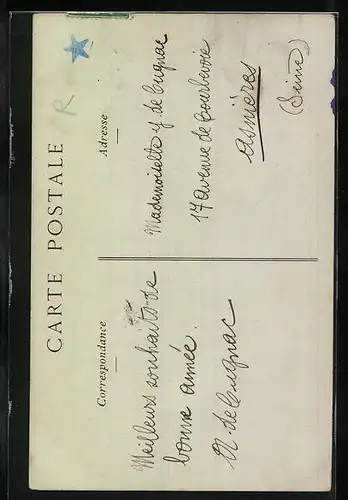 CARTE POSTALE
Correspondance
Meilleurs souhaits de
bonne année.
M. de Cugnac
Adresse
Mademoiselle Y. de Cugnac
17 avenue de Courbevoie
Asnières
(Seine)
R